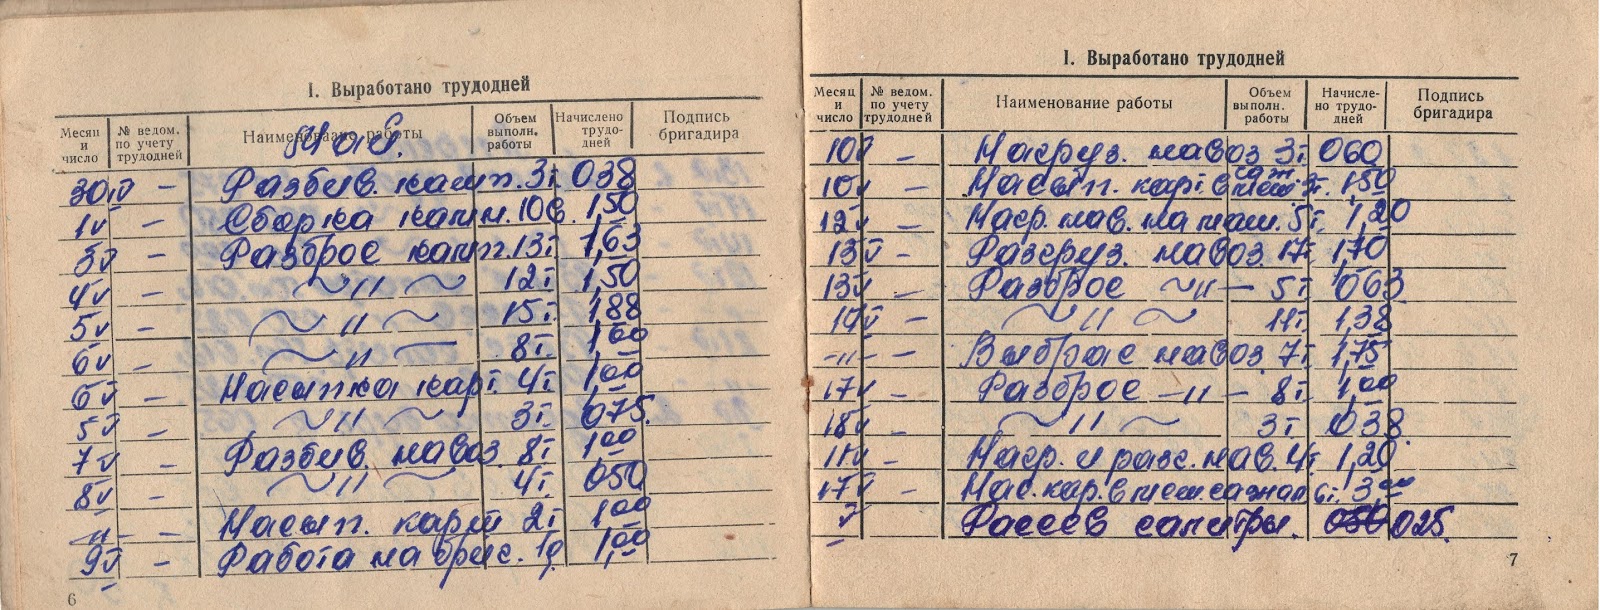 I. Выработано трудодней
Месяц и число № ведом. по учету трудодней Наименоваание работы Объем выполн. работы Начислено трудодней Подпись бригадира
Май.
30 IV – Разбив. камп. 3т. 038
1 V – Сборка камн. 10с. 1,50
3 V – Разброс камп. 13т. 1,63
4 V – ~ " ~ 12т. 1,50
5 V – ~ " ~ 15т. 1,88
6 V – ~ " ~ 8т. 1,00
6 V – Насыпка карт. 4т. 1,00
5 V – ~ " ~ 3т. 075.
7 V – Разбив. навоз. 8т. 1,00
8 V – ~ " ~ 4т. 050
– " – – Насып. карт 2т. 1,00
9 V – Работа на 1,00
6
I. Выработано трудодней
Месяц и число № ведом. по учету трудодней Наименование работы Объем выполн. работы Начислено трудодней Подпись бригадира
10 V – Нагруз. навоз 3т. 060
10 V – Насып. карт. в саж. 1,50
12 V – Нагр. нав. на маш. 5т. 1,20
13 V – Разгруз. навоз. 17т. 1,70
13 V – Разброс ~ " – 5т. 063
14 V – ~ " ~ 11т. 1,38
– " – – Выброс навоз. 7т. 1,75
17 V – Разброс – " – 8т. 1,00
18 V – ~ " ~ 3т. 038.
11 V – Нагр. и разг. нав. 4т. 1,20
17 V – Нас. кар. в 6т. 3,00
V Рассев селитры. 050 025.
7